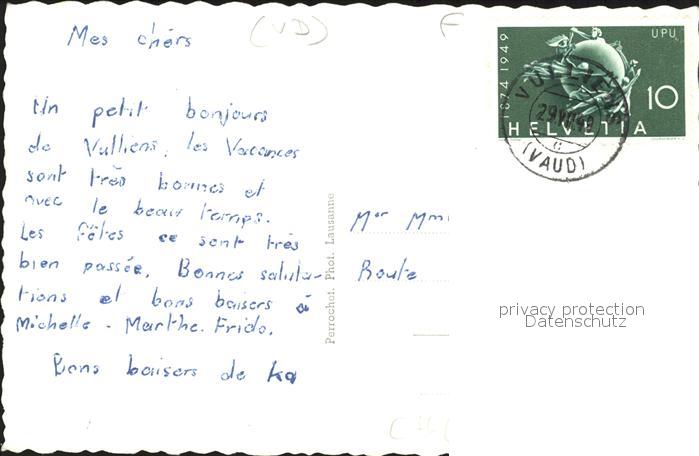 (VD)
Mes chérs
Un petit bonjours
de Vulliens, les Vacances
sont très bonnes et
avec le beau temps.
Les fêtes ce sont très
bien passée. Bonnes saluta-
tions et bons baisers à
Michelle - Marthe. Frido.
Bons baisers de
Perrochet. Phot. Lausanne
1874 1949
UPU
10
HELVETIA
VULLIENS
(VAUD)
Mer Mm
Route
privacy protection
Datenschutz